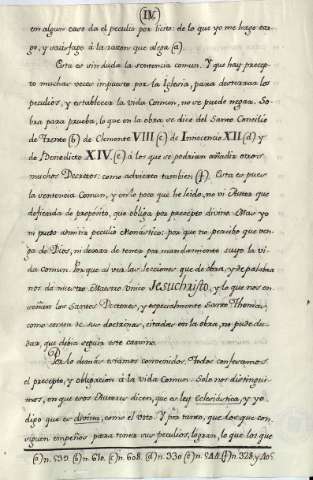 (IV)
en algun caso da el peculio por licito: de lo que yo me hago car-
go, y satisfago à la razon que alega (a).
Esta es sin duda la sentencia comun. Y que hay precep-
to muchas veces impuesto por la Iglesia, para desterrar los
peculios, y establecer la vida Comun, no se puede negar. So-
bra para prueba, lo que en la obra se dice del Santo Concilio
de Trento (b) de Clemente VIII (c) de Innocencio XII (d) y
de Benedicto XIV. (e) à los que se podrian añadir otros
muchos Decretos: como advierto tambien (f). Esta es pues
la sentencia Comun, y en lo poco que he leido, no vi Autor que
defienda de proposito, que obliga por precepto divino. Mas yo
ni pude admitir peculio Monastico: por que no percibo que ven-
ga de Dios, ni dexara de tener por mandamiento suyo la vi-
da comun. Porque al ver las lecciones que de obra, y de palabra
nos dà nuestro Maestro Unico Jesuchristo, y lo que nos en-
señan los Santos Doctores, y especialmente Santo Thomàs,
como consta de sus doctrinas, citadas en la obra, no pude du-
dar, que debia seguir este camino.
Por lo demàs estamos convenidos. Todos confesamos
el precepto, y obligacion à la vida Comun. Solo nos distingui-
mos, en que esos Autores dicen, que es ley Eclesiastica, y yo
digo que es divina, como el Voto. Y por tanto, que los que con-
siguen empeños para tener sus peculios, logran, lo que los que
(a) n. 539. (b) n. 610. (c) n. 608. (d) n. 330 (e) n. 544. (f) n. 328. y 405